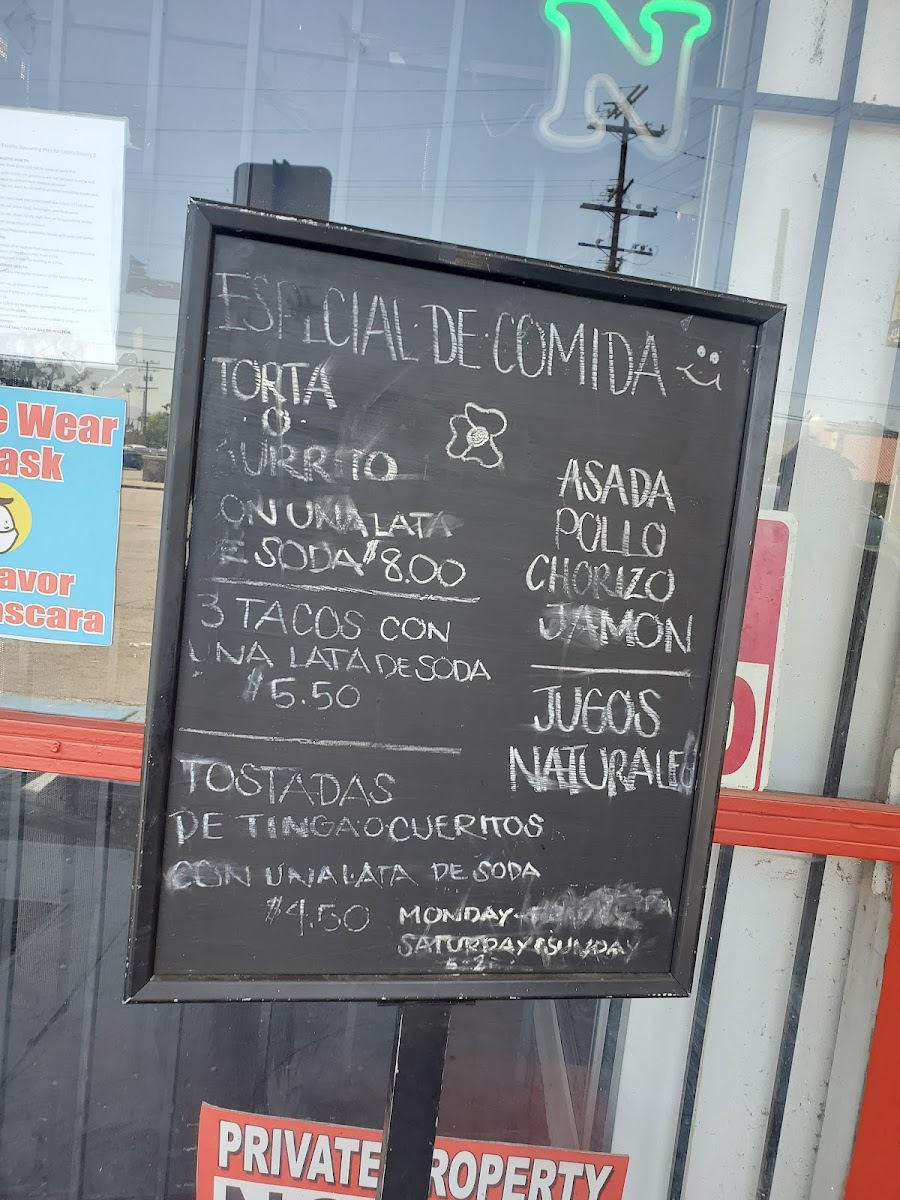 N
e Wear
ask
avor
ascara
ESPECIAL DE COMIDA
TORTA
O
BURRITO
CON UNA LATA
DE SODA $8.00
3 TACOS CON
UNA LATA DE SODA
$5.50
TOSTADAS
DE TINGA O CUERITOS
CON UNA LATA DE SODA
$4.50
ASADA
POLLO
CHORIZO
JAMON
JUGOS
NATURALES
MONDAY-
SATURDAY&SUNDAY
PRIVATE PROPERTY